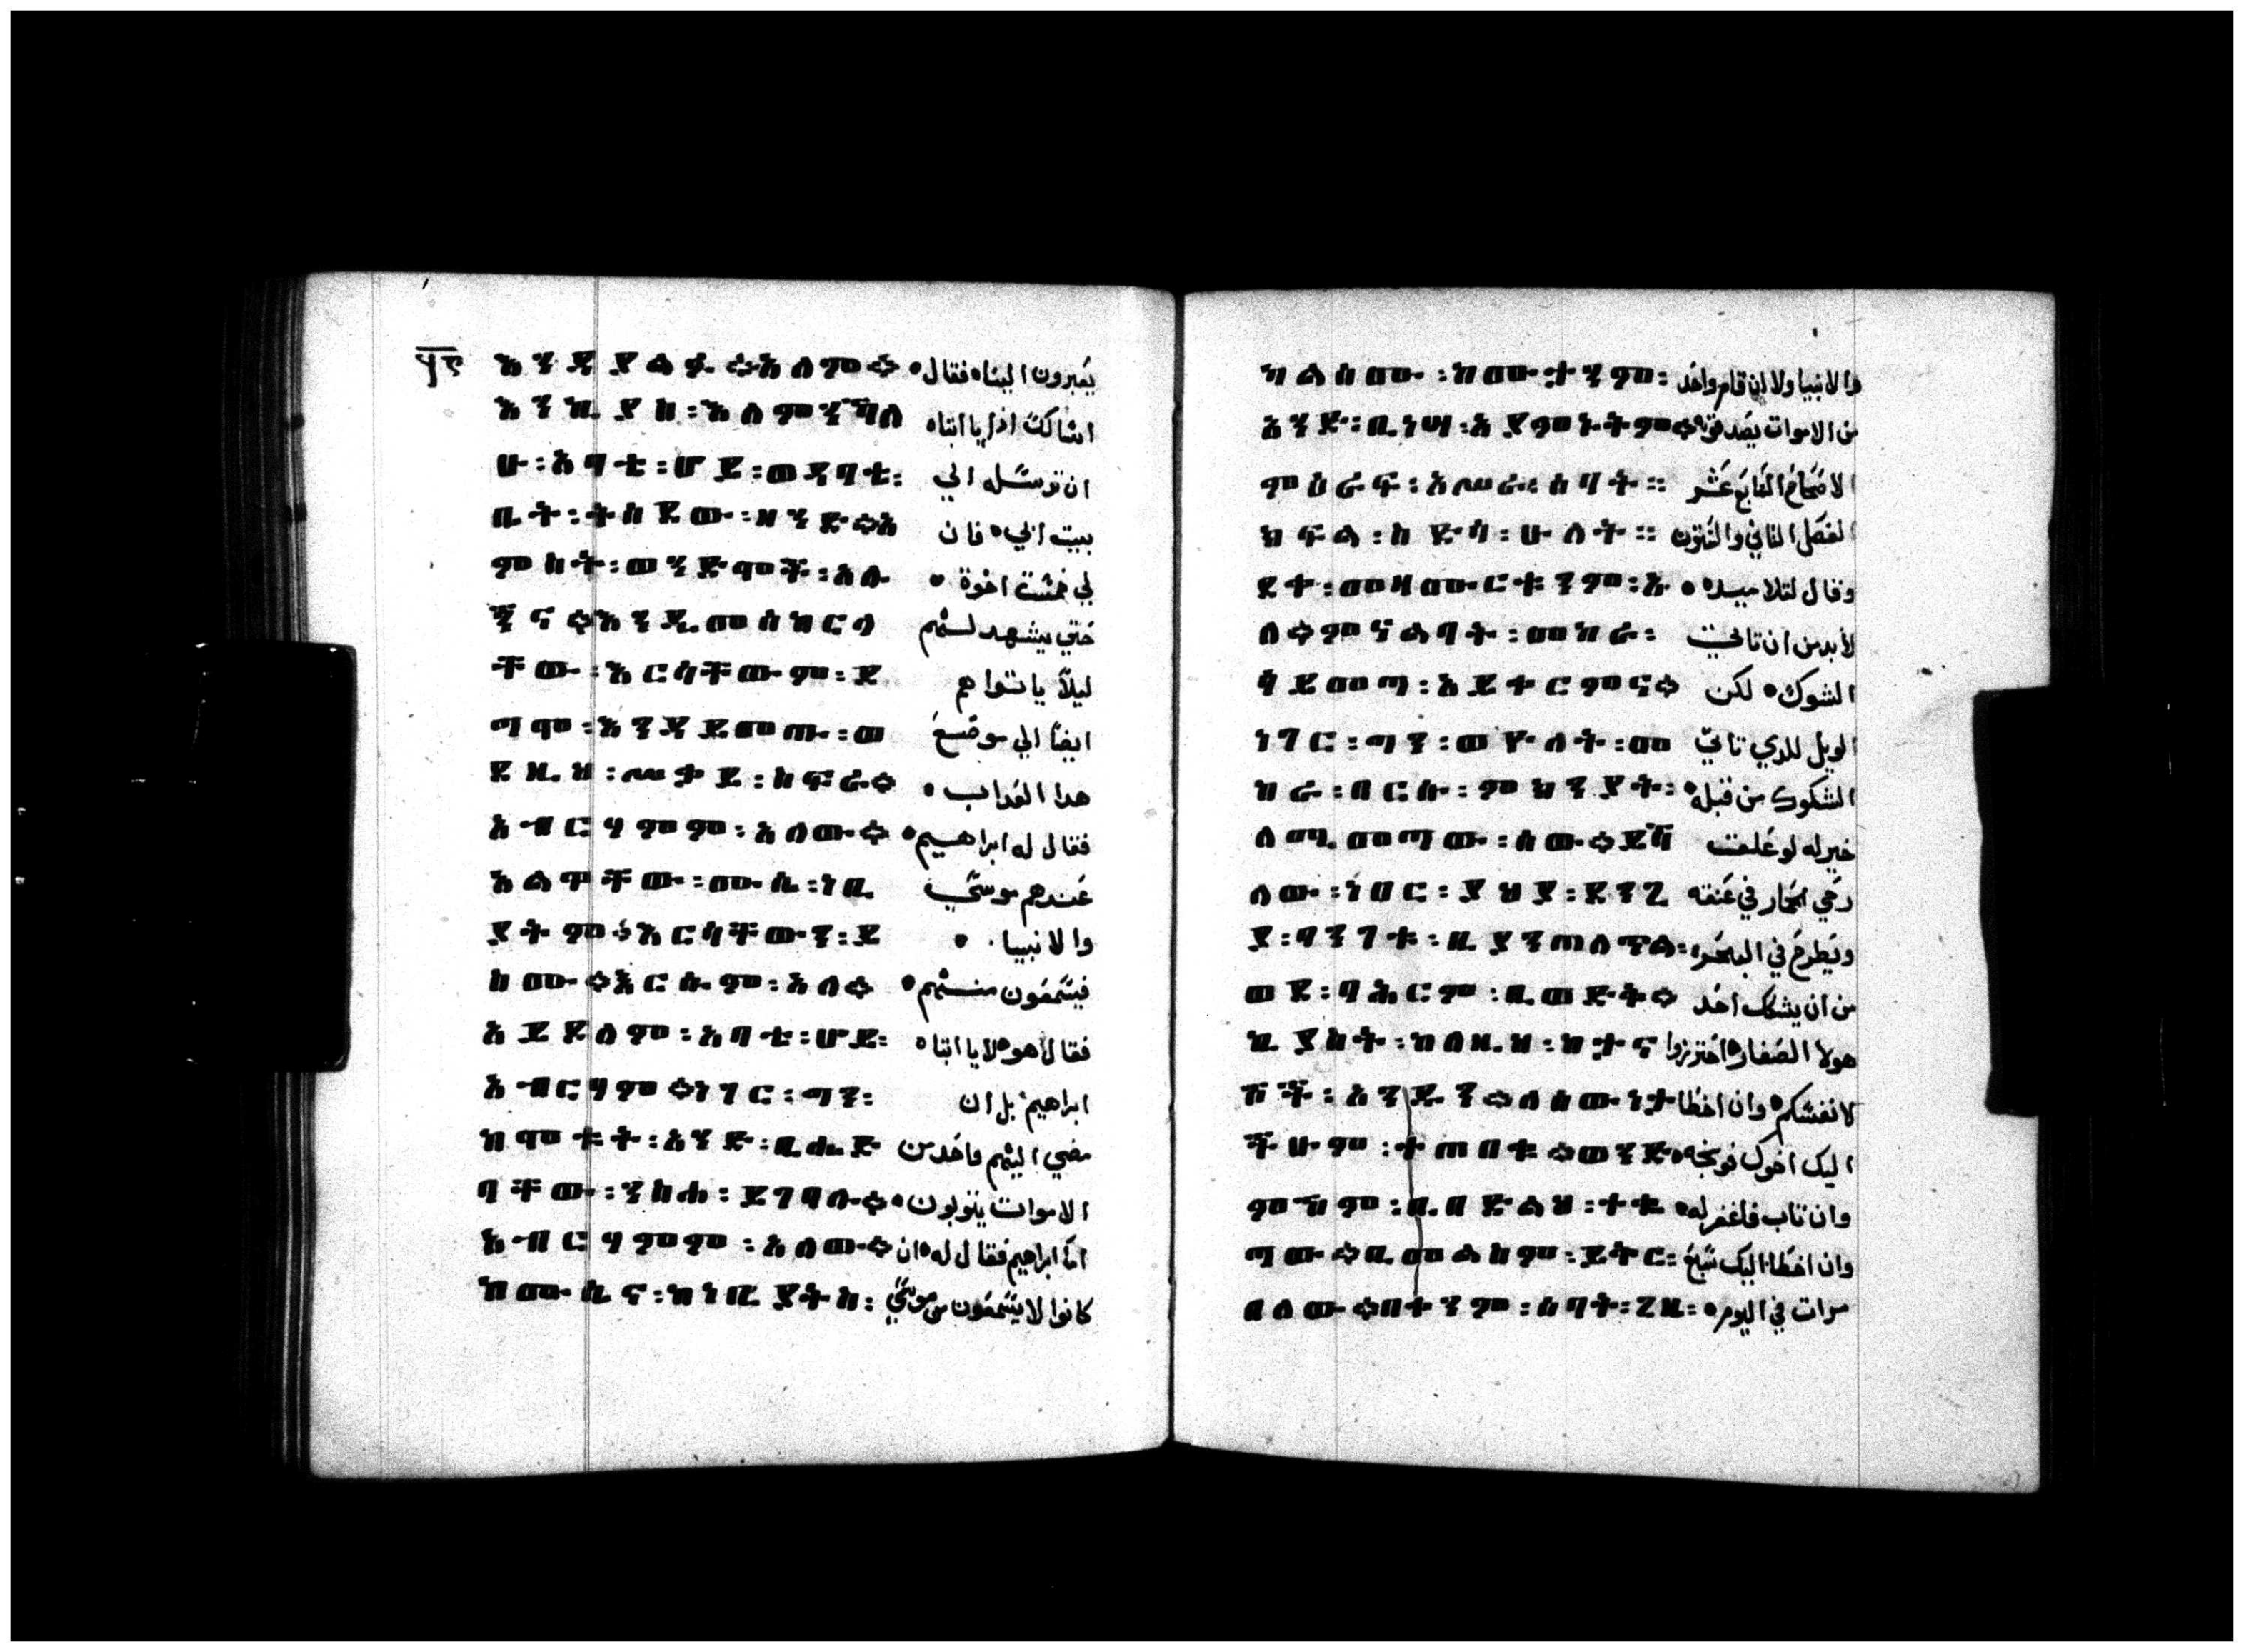 እንዳያልፉ።እሰም። يعبرون الينا ه فقال
እንኪያስ፡እለምንኻለ اسالك اذا يا ابتاه
ሁ፡አባቴ፡ሆይ፡ወዳባቴ፡ ان ترسله الي
ቤት፡ትሰደው፡ዘንድ።አ بيت ابي ه فان
ምስት፡ወንድሞች፡አሉ لي خمست اخوة ه
ኝና።እንዲመሰክርላ حتي يشهد لهم
ቸው፡እርሳቸውም፡ደ ليلا ياتوا هم
ግሞ፡እንዳይመጡ፡ወ ايضا الي موضع
ደዚህ፡ሥቃይ፡ስፍራ። هدا العداب ه
አብርሃምም፡አለው። فقال له ابراهيم ه
አልዋቸው፡ሙሴ፡ነቢ عندهم موسي
ያትም።እርሳቸውን፡ይ والانبيا ه
ስሙ።እርሱም፡አለ። فيسمعون منهم ه
አይደለም፡አባቴ፡ሆይ፡ فقال هو ه لا يا ابتاه
አብርሃም።ነገር፡ግን፡ ابراهيم ه بل ان
ከሞቱት፡አንድ፡ቢሔድ مضي اليهم واحد من
ባቸው፡ንስሐ፡ይገባሉ። الاموات يتوبون ه
አብርሃምም፡አለው። اما ابراهيم فقال له ه ان
ከሙሴና፡ከነቢያት፡ከ፡ كانوا لا يسمعون من موسي
ካልሰሙ፡ከሙታንም፡ والانبيا ولا ان قام واحد
አንድ፡ቢነሣ፡አያምኑትም። من الاموات يصدقو ه
ምዕራፍ፡አሥራ፡ሰባት። الاصحاح السابع عشر
ክፍል፡ስድሳ፡ሁለት። الفصل الثاني والستون
ደቀ፡መዛሙርቱንም፡አ وقال لتلاميده ه
ለ።ምናልባት፡መከራ፡ لابد من ان تاتي
ሳይመጣ፡አይቀርምና። الشوك ه لكن
ነገር፡ግን፡ወዮለት፡መ الويل للدي تاتي
ከራ፡በርሱ፡ምክንያት፡ الشكوك من قبله ه
ለሚመጣው፡ሰው።ይሻ خير له لو علقت
ለው፡ነበር፡ያህያ፡ደንጊ رحي الحمار في عنقه
ያ፡ባንገቱ፡ቢያንጠለጥል፡ ويطرح في البحر ه
ወደ፡ባሕርም፡ቢወድቅ። من ان يشكك احد
ቢያስት፡ከለዚህ፡ከታና هولا الصغار ه احترزوا
ሾች፡አንድን።ለሰውነታ لانفسكم ه وان اخطا
ችሁም፡ተጠበቁ።ወንድ اليك اخوك فوبخه ه
ምኽም፡ቢበድልህ፡ተቆ وان تاب فاغفر له ه
ጣው።ቢመልስም፡ይትር፡ وان اخطا اليك سبع
በለው።በቀንም፡ሰባት፡ጊዜ፡ مرات في اليوم ه